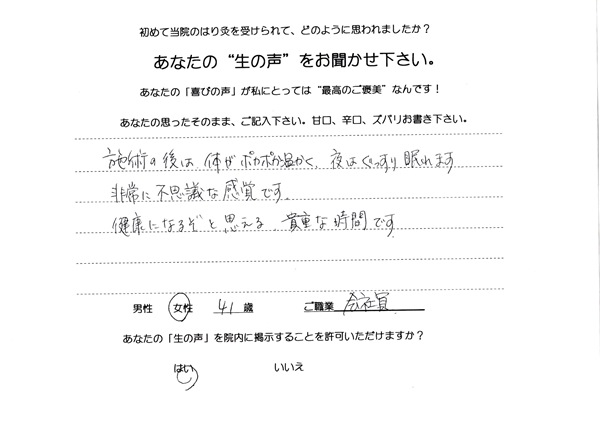 初めて当院のはり灸を受けられて、どのように思われましたか？
あなたの“生の声”をお聞かせ下さい。
あなたの「喜びの声」が私にとっては“最高のご褒美”なんです！
あなたの思ったそのまま、ご記入下さい。甘口、辛口、ズバリお書き下さい。
施術の後は、体がポカポカ温かく、夜はぐっすり眠れます
非常に不思議な感覚です。
健康になるぞと思える、貴重な時間です
男性 女性 41歳 ご職業 会社員
あなたの「生の声」を院内に掲示することを許可いただけますか？
はい いいえ